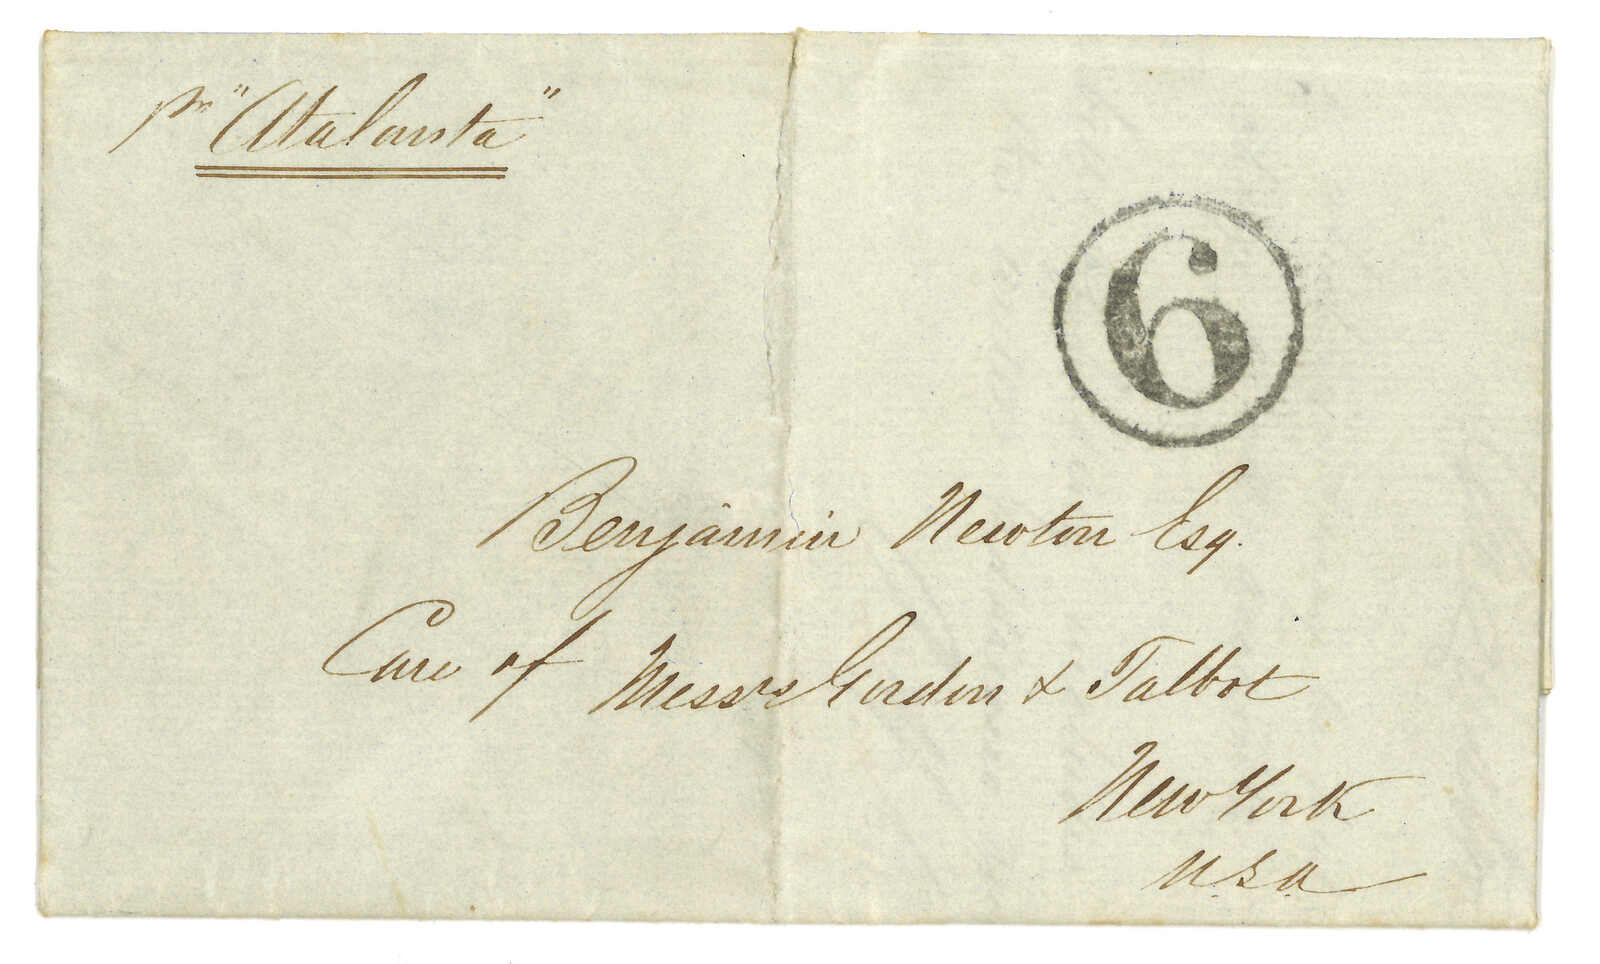 pr "Atalanta"
6
Benjamin Newton Esq.
Care of Messrs Gordon & Talbot
New York
U.S.A